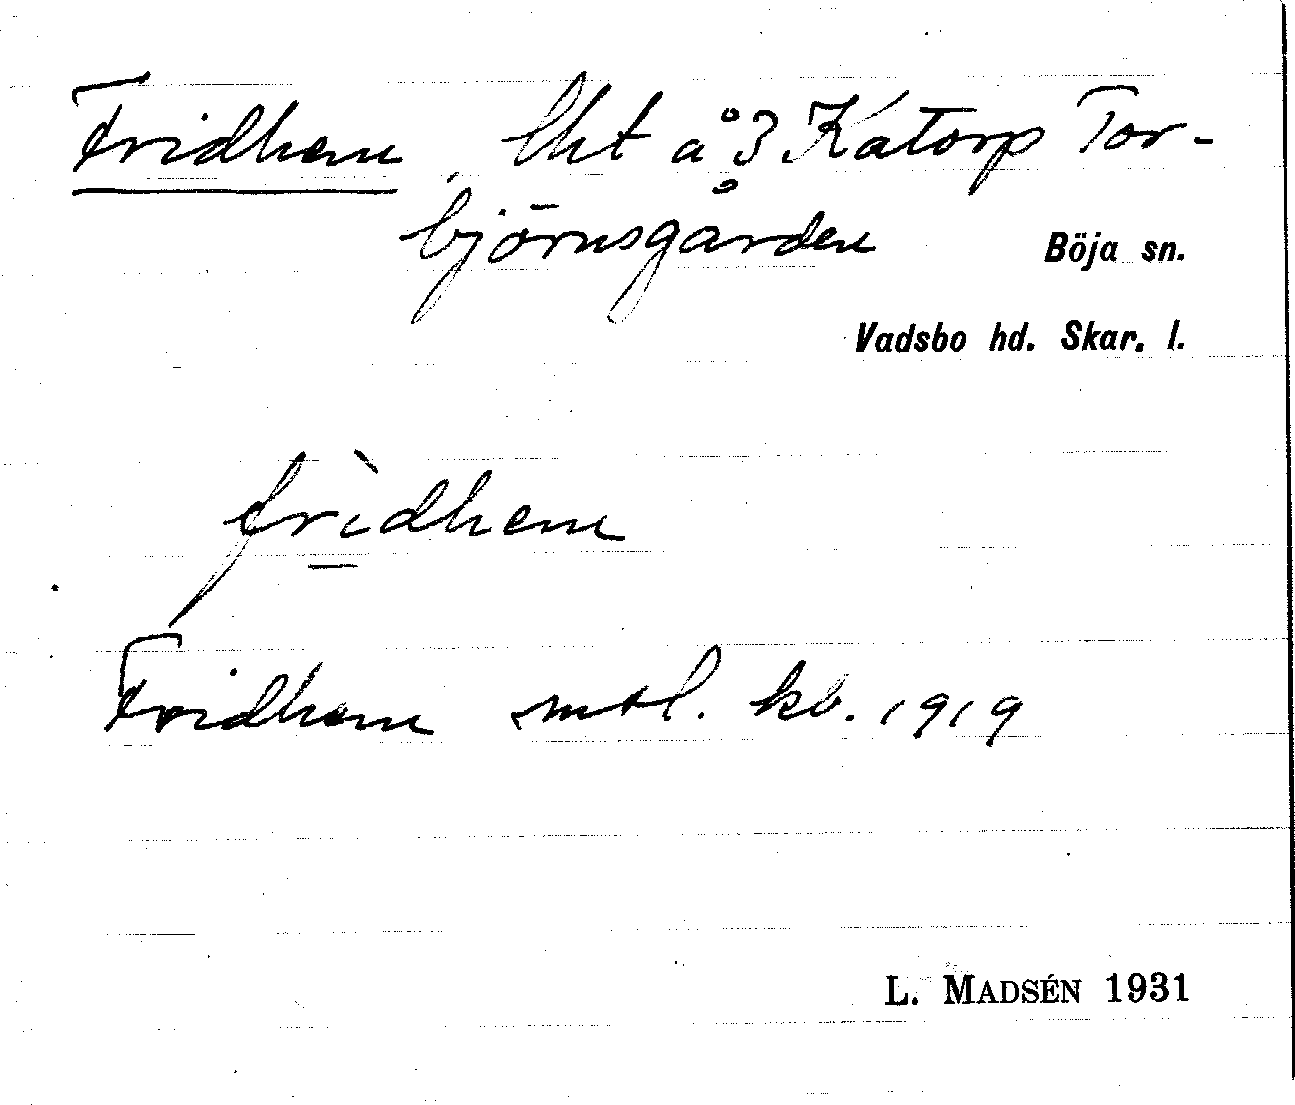 Fridhem, lht å 3 Katorp Tor-
björnsgården
Böja sn.
Vadsbo hd. Skar. l.
frìdhem
Fridhem mtl. kb. 1919
L. MADSÉN 1931